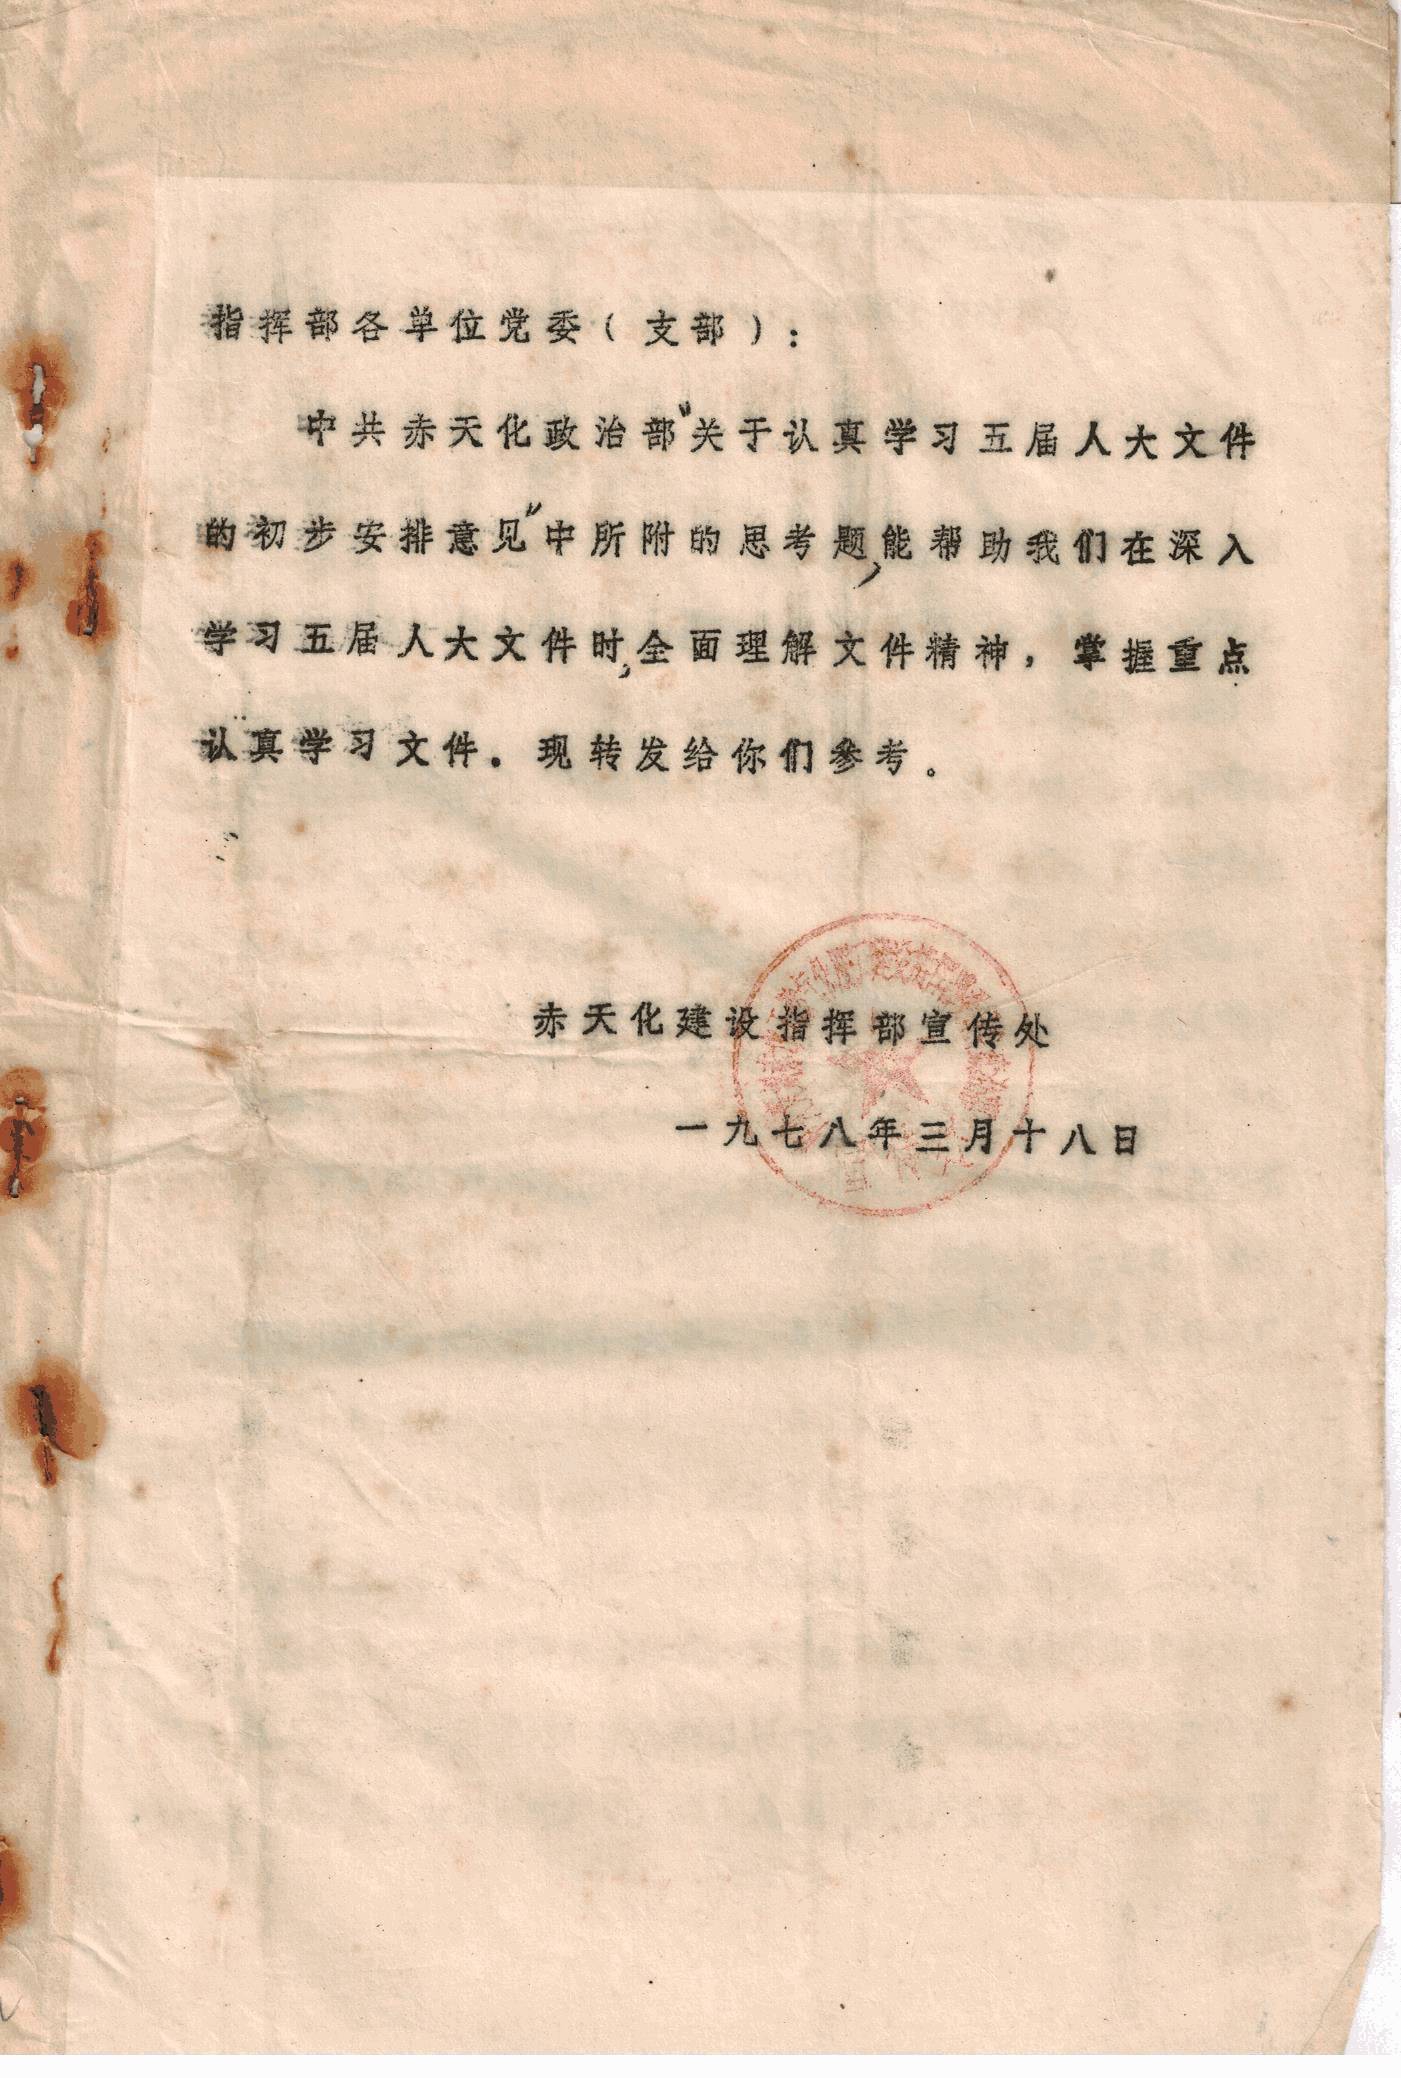 指挥部各单位党委（支部）：
中共赤天化政治部"关于认真学习五届人大文件
的初步安排意见"中所附的思考题，能帮助我们在深入
学习五届人大文件时，全面理解文件精神，掌握重点
认真学习文件。现转发给你们参考。
赤天化建设指挥部宣传处
一九七八年三月十八日